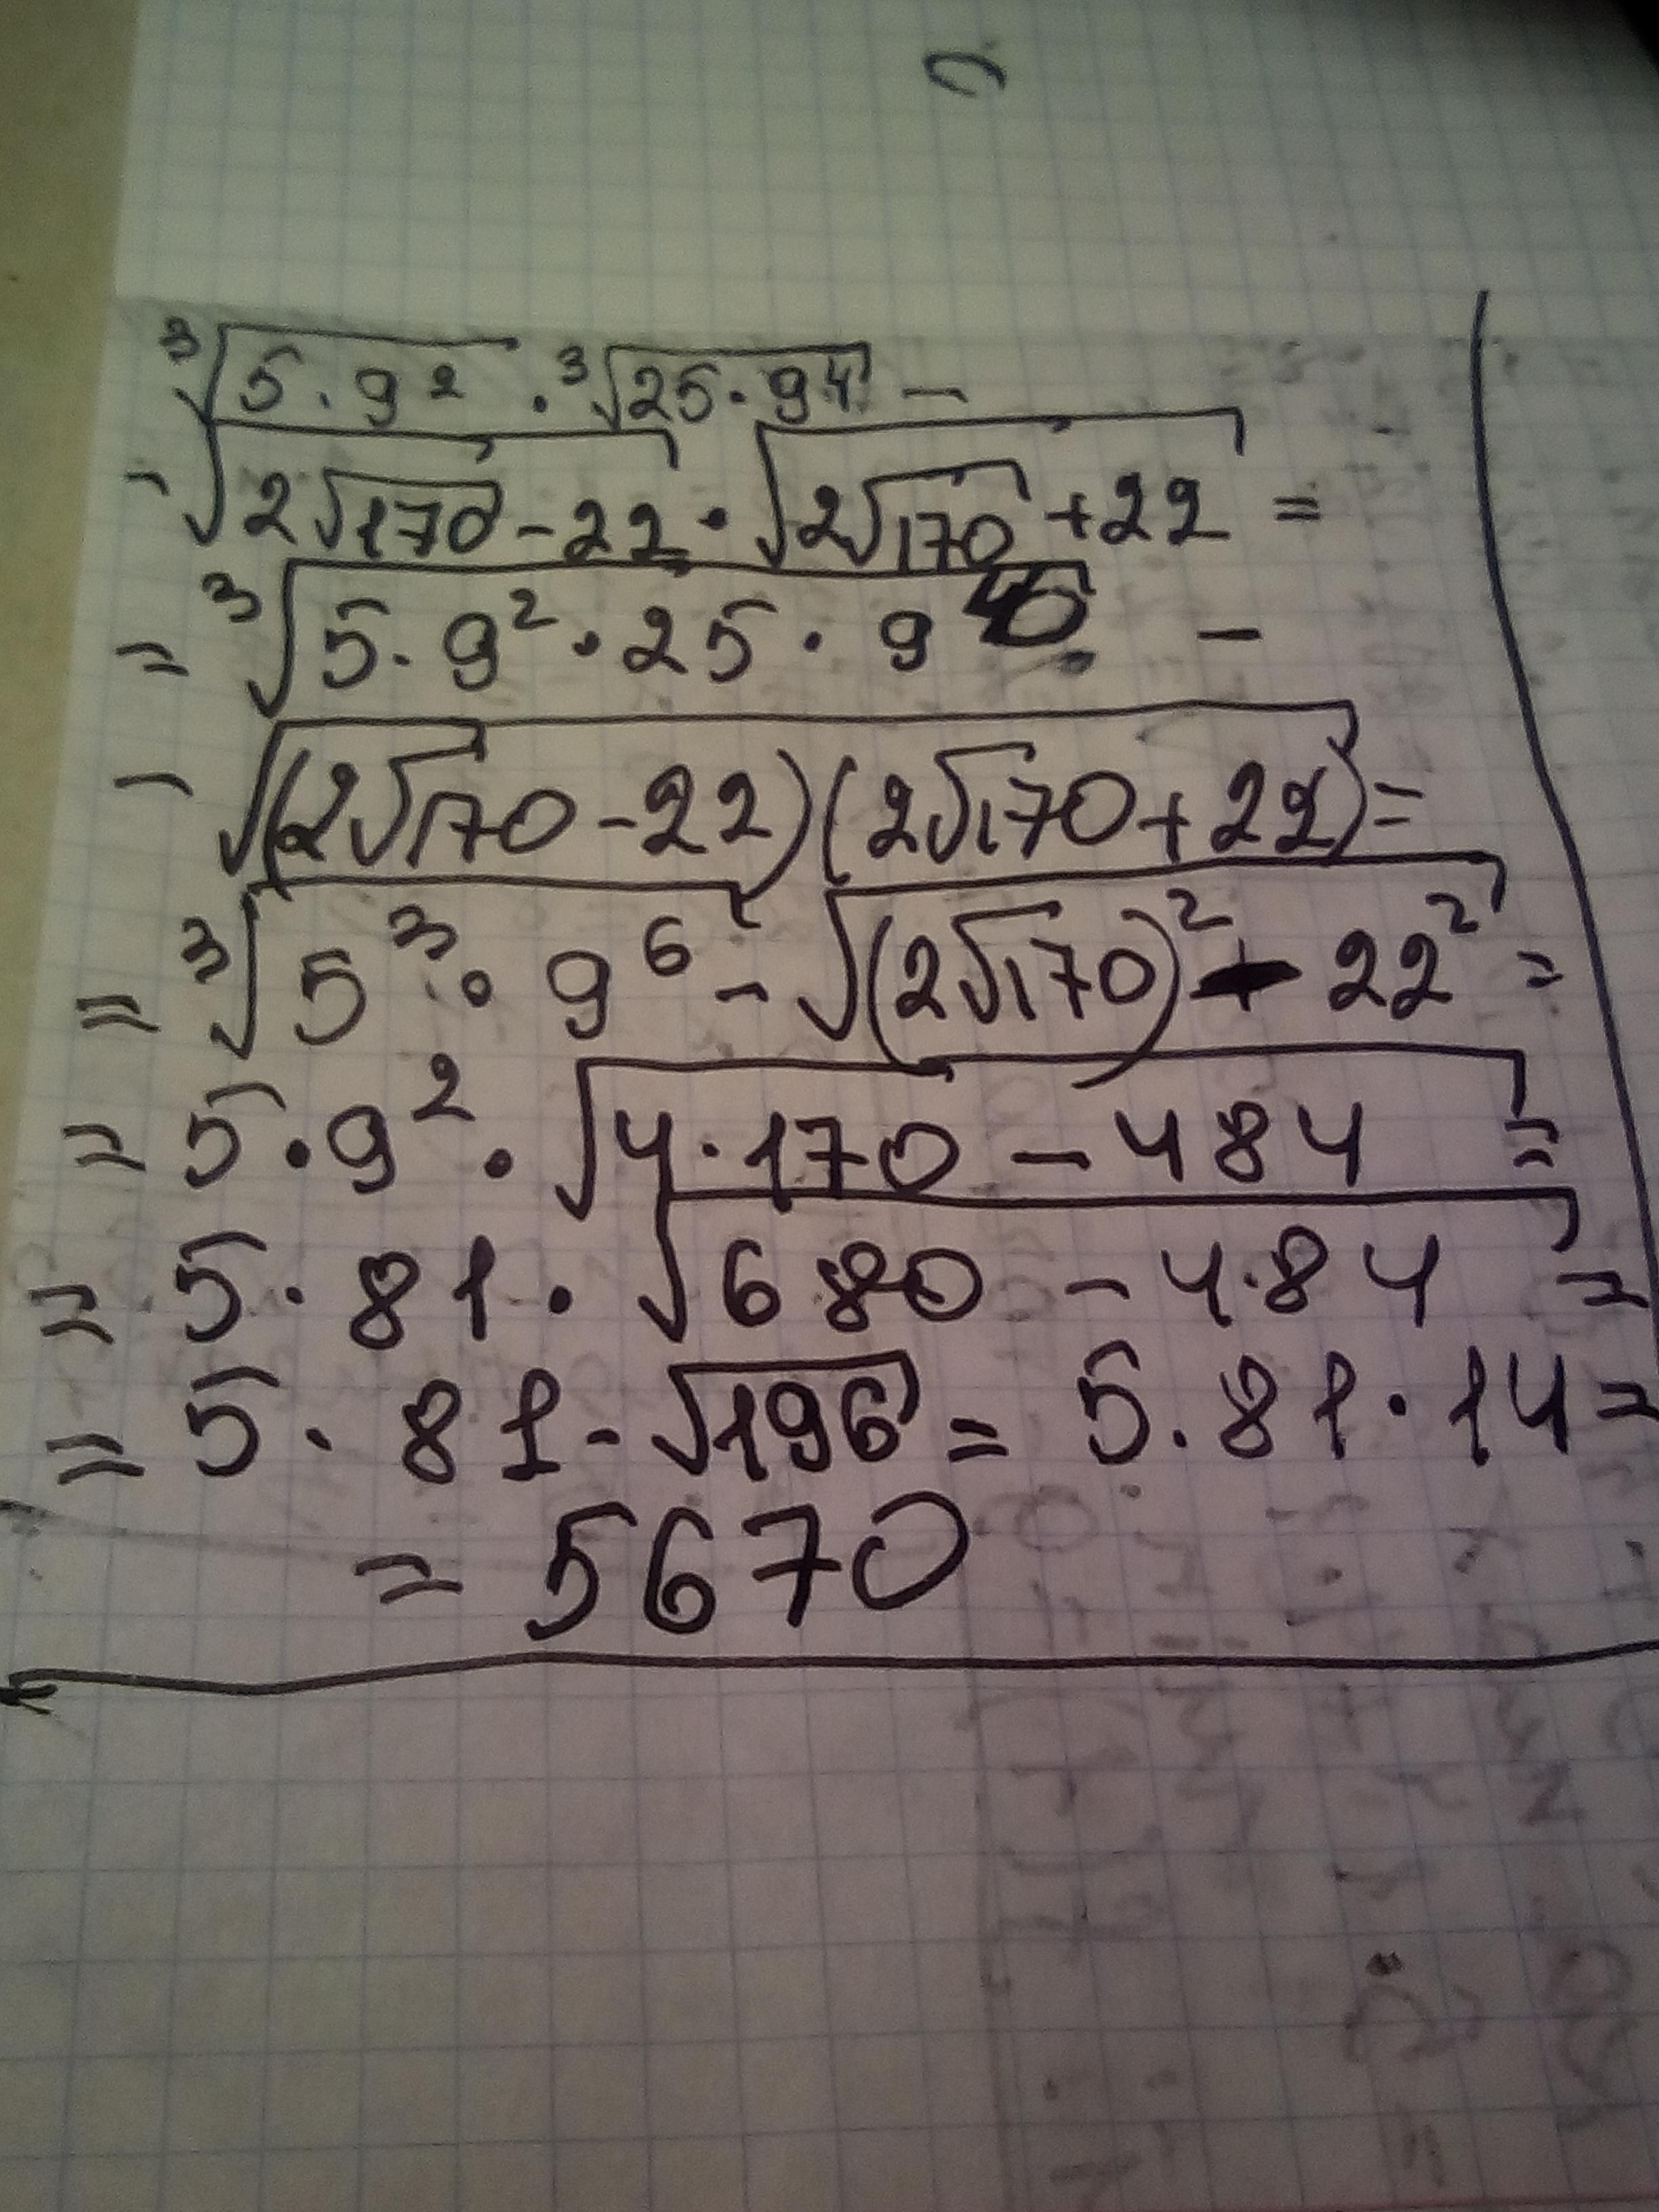 ∛(5·9²) · ∛(25·9⁴) −
− √(2√170 − 22) · √(2√170 + 22) =
= ∛(5·9²·25·9⁴) −
− √((2√170 − 22)(2√170 + 22)) =
= ∛(5³·9⁶) − √((2√170)² − 22²) =
= 5·9² · √(4·170 − 484) =
= 5·81 · √(680 − 484) =
= 5·81 − √196 = 5·81·14 =
= 5670